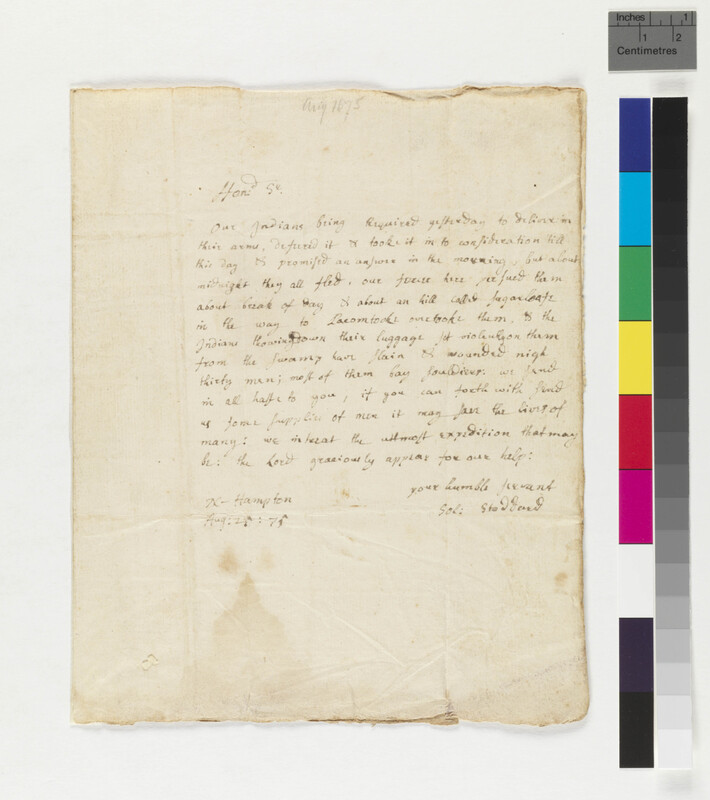 Inches 1
1 2
Centimetres
Aug 1675
Hond Sr.
Our Indians being Required yesterday to deliver in
their arms, defered it & tooke it in to consideration till
this day & promised an answer in the morning, but about
midnight they all fled, our forces here persued them
about break of day & about an hill called sugarloafe
in the way to Pacomtooke overtooke them, & the
Indians throwing down their luggage set violently on them
from the swamp have slain & wounded nigh
thirty men; most of them bay souldiers: we send
in all haste to you, if you can forth with send
us some supplies of men it may save the lives of
many: we intreat the utmost expedition that may
be: the Lord graciously appear for our help:
your humble servant
N-Hampton
Sol: Stoddard
Aug: 25: 75